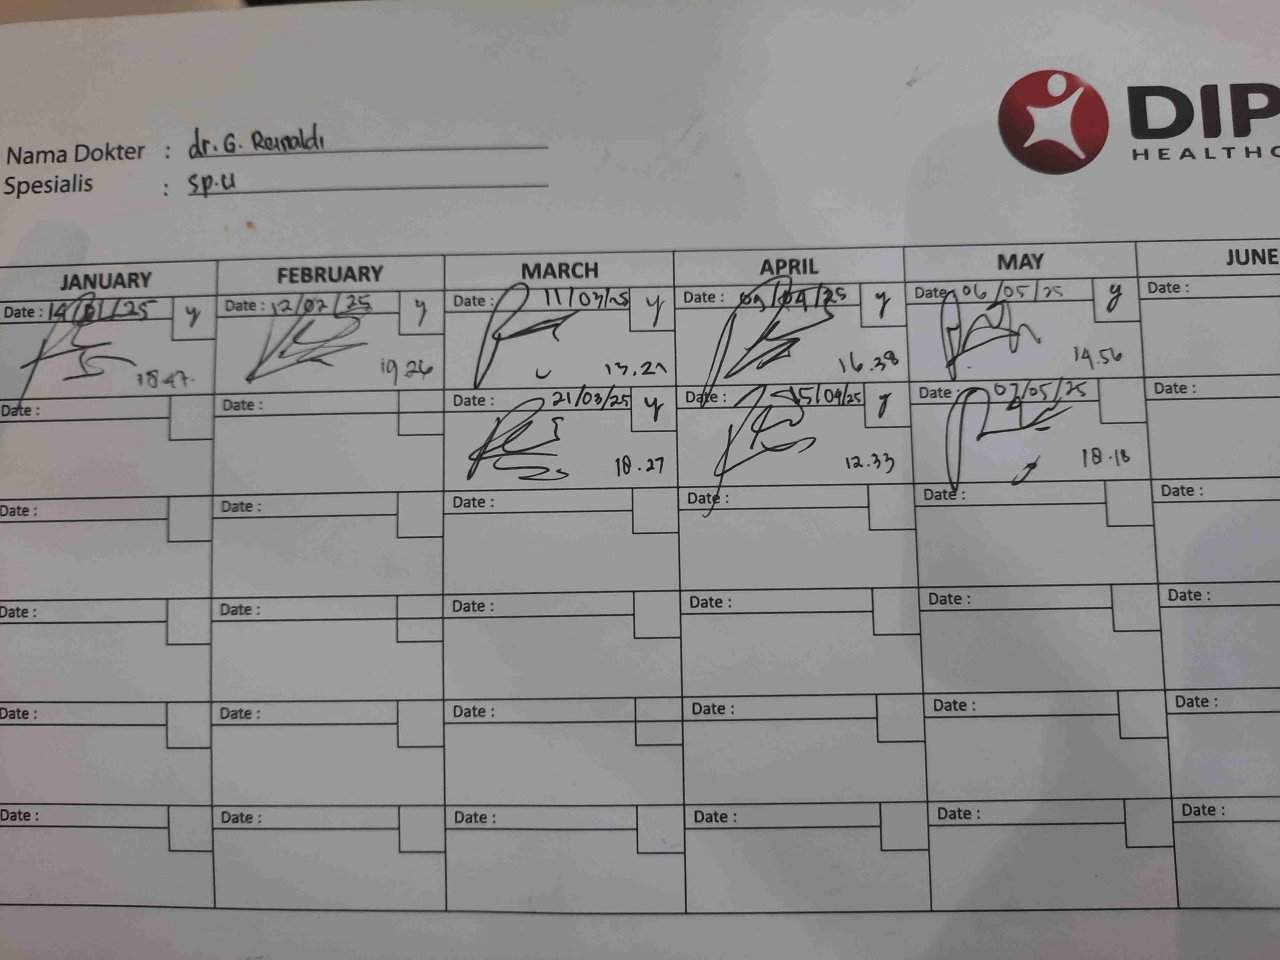 Nama Dokter : dr. G. Reinaldi
Spesialis : Sp.U
DIP
HEALTHC
JANUARY FEBRUARY MARCH APRIL MAY JUNE
Date : 14/01/25 y Date : 12/02/25 y Date : 11/03/25 y Date : 09/04/25 y Date : 06/05/25 y Date :
18.47. 19.26 13.27 16.38 14.56
Date : Date : Date : 21/03/25 y Date : 15/04/25 y Date : 07/05/25 Date :
18.27 12.33 18.18
Date : Date : Date : Date : Date : Date :
Date : Date : Date : Date : Date : Date :
Date : Date : Date : Date : Date : Date :
Date : Date : Date : Date : Date : Date :